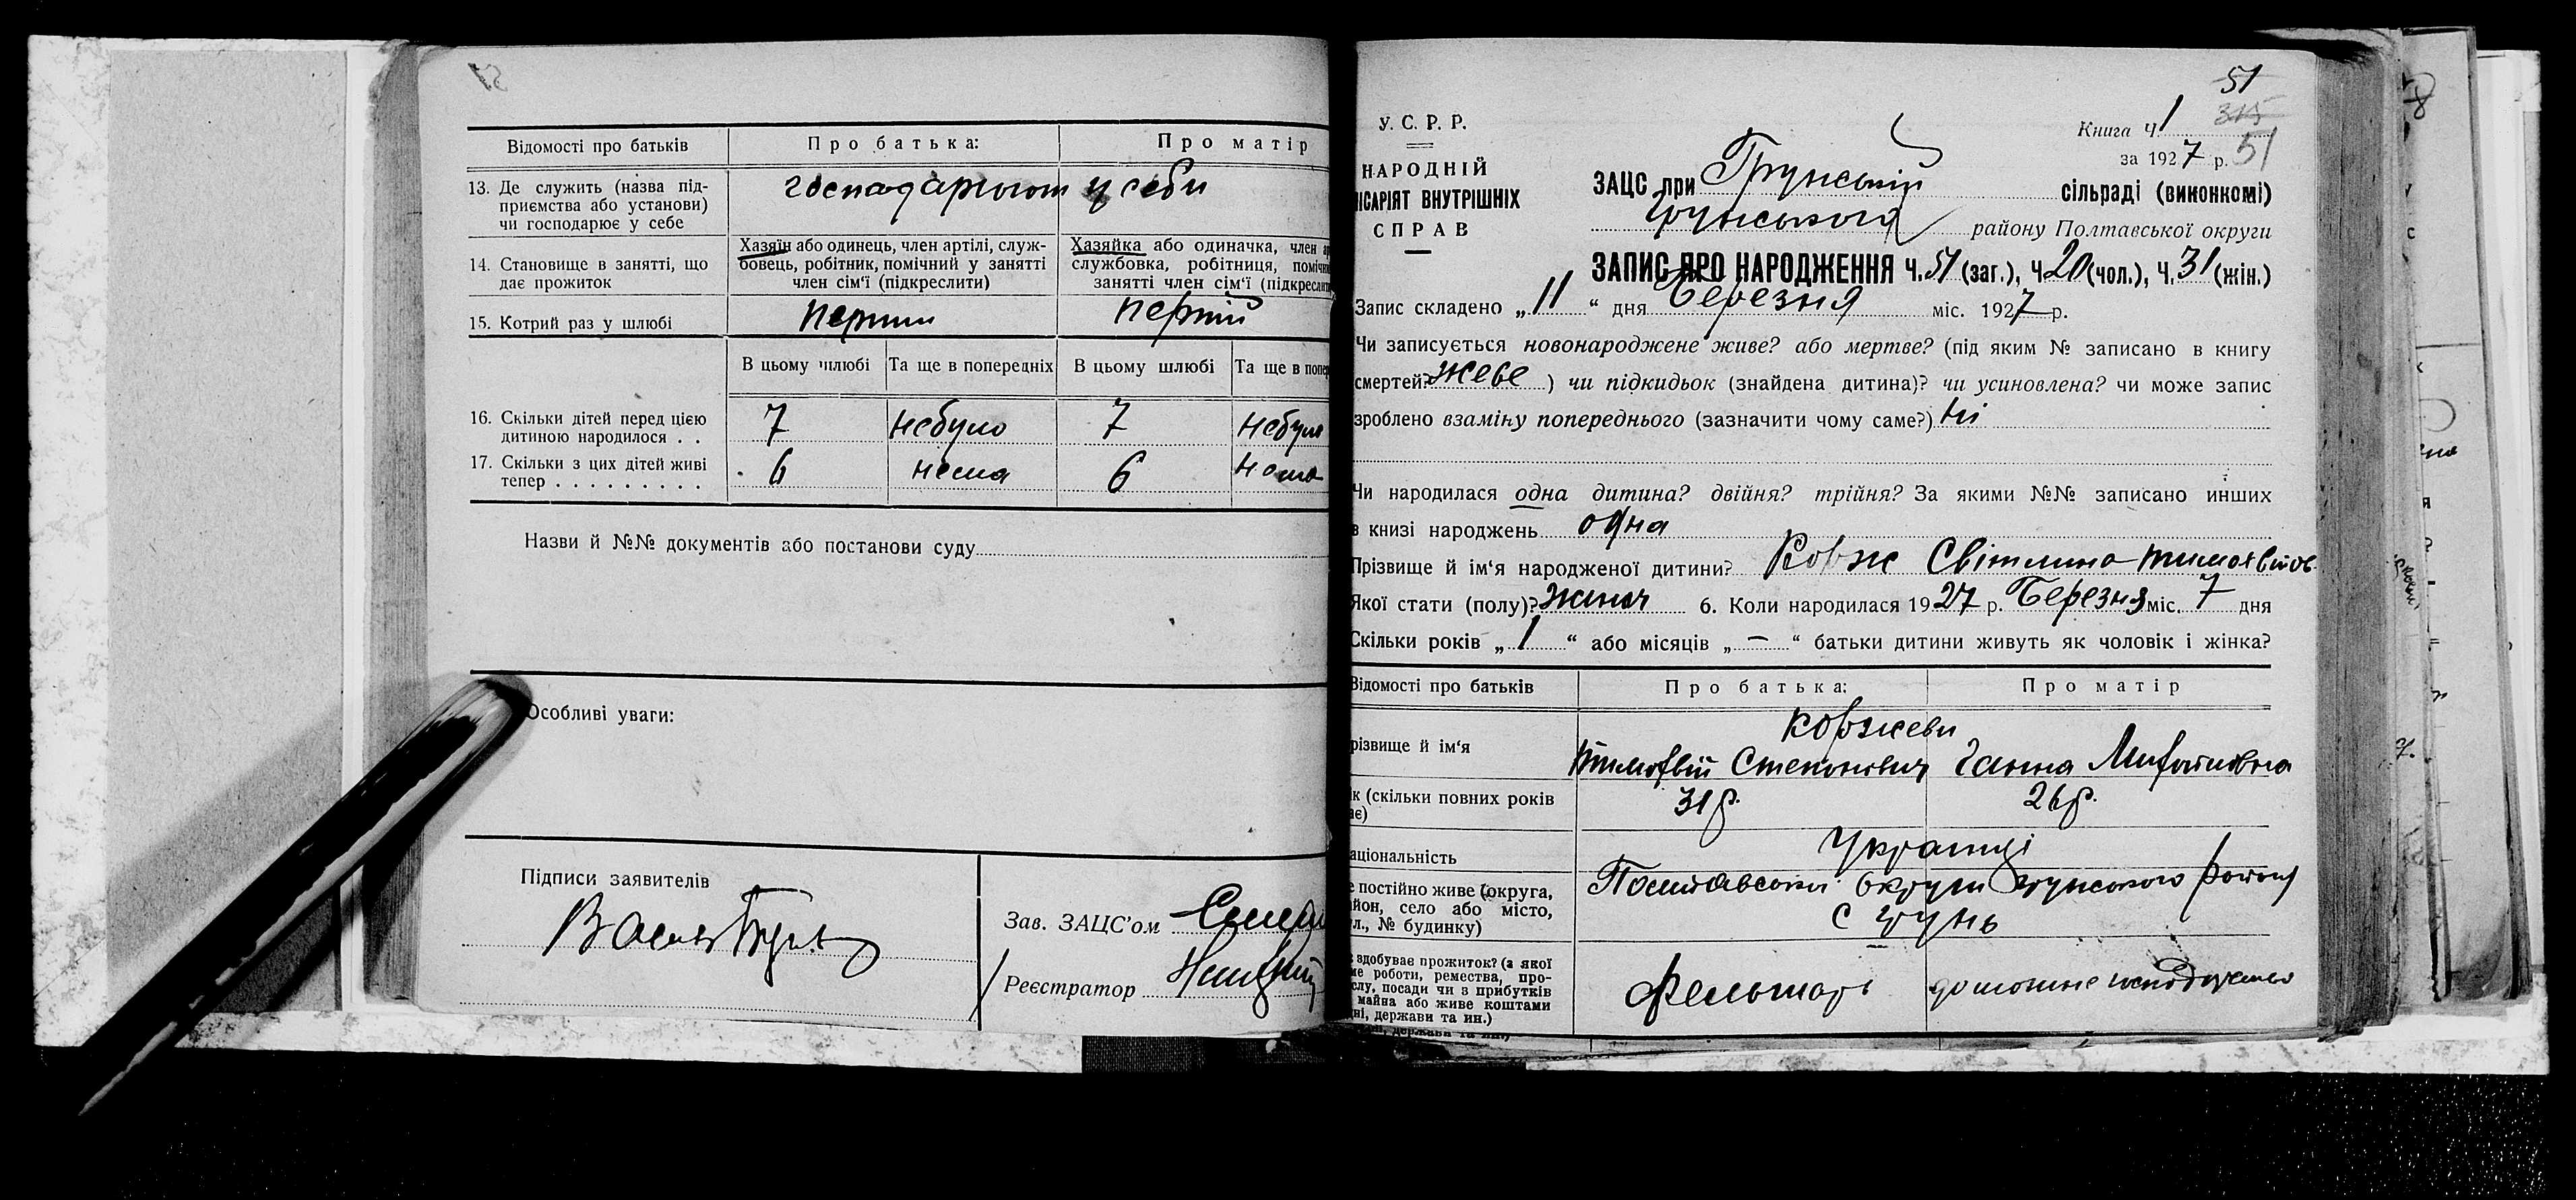 Відомості про батьків
Про батька:
Про матір
13. Де служить (назва під-
приємства або установи)
чи господарює у себе
господарюють у себи
14. Становище в занятті, що
дає прожиток
Хазяїн або одинець, член артілі, служ-
бовець, робітник, помічний у занятті
член сім'ї (підкреслити)
Хазяйка або одиначка, член
службовка, робітниця,
занятті член сім'ї
15. Котрий раз у шлюбі
перший
перший
В цьому шлюбі
Та ще в попередніх
В цьому шлюбі
Та ще в
16. Скільки дітей перед цією
дитиною народилося . .
7
небуло
7
небуло
17. Скільки з цих дітей живі
тепер . . . . . . . . .
6
нема
6
нема
Назви й №№ документів або постанови суду
Особливі уваги:
Підписи заявителів
Зав. ЗАЦС'ом
Реєстратор
51
315
51
У. С. Р. Р.
НАРОДНІЙ
ІСАРІЯТ ВНУТРІШНІХ
СПРАВ
Книга ч. 1
за 1927 р.
ЗАЦС при Грунській сільраді (виконкомі)
Грунського району Полтавської округи
ЗАПИС ПРО НАРОДЖЕННЯ Ч. 51 (заг.), Ч 20 (чол.), Ч. 31 (жін.)
Запис складено „11“ дня Березня міс. 1927 р.
Чи записується новонароджене живе? або мертве? (під яким № записано в книгу
смертей? живе ) чи підкидьок (знайдена дитина)? чи усиновлена? чи може запис
зроблено взаміну попереднього (зазначити чому саме?) ні
Чи народилася одна дитина? двійня? трійня? За якими №№ записано инших
в книзі народжень одна
Прізвище й ім'я народженої дитини? Корж Світлина Тимохвіїов-
Якої стати (полу)? жіноч 6. Коли народилася 1927 р. Березня міс. 7 дня
Скільки років „1“ або місяців „—“ батьки дитини живуть як чоловік і жінка?
Відомості про батьків
Про батька:
Про матір
різвище й ім'я
Коржеви
Тимохвій Степонович
Ганна Михайловна
к (скільки повних років
ає)
31 р.
26 р.
аціональність
Українці
е постійно живе (округа,
йон, село або місто,
ул., № будинку)
Полтавської округи Грунського району
с Грунь
здобуває прожиток? (з якої
ме роботи, ремества, про-
слу, посади чи з прибутків
майна або живе коштами
ні, держави та ин.)
Фельшарь
домошне господарство